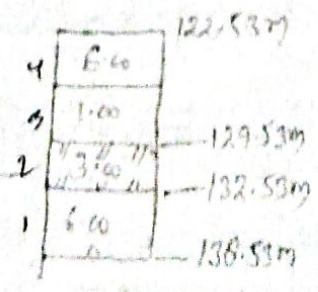 122.53m
4 6.00
3 1.00
129.53m
2 3.00
132.53m
1 6.00
138.53m